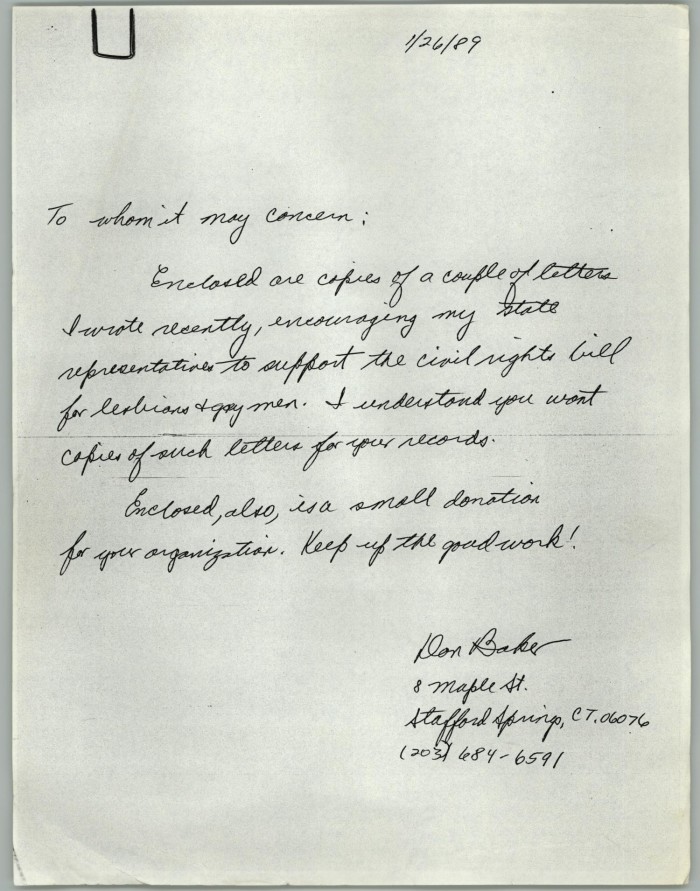 1/26/89
To whom it may concern:
Enclosed are copies of a couple of letters
I wrote recently, encouraging my State
representatives to support the civil rights bill
for lesbians + gay men. I understand you want
copies of such letters for your records.
Enclosed, also, is a small donation
for your organization. Keep up the good work!
Don Baker
8 Maple St.
Stafford Springs, CT. 06076
(203) 684-6591